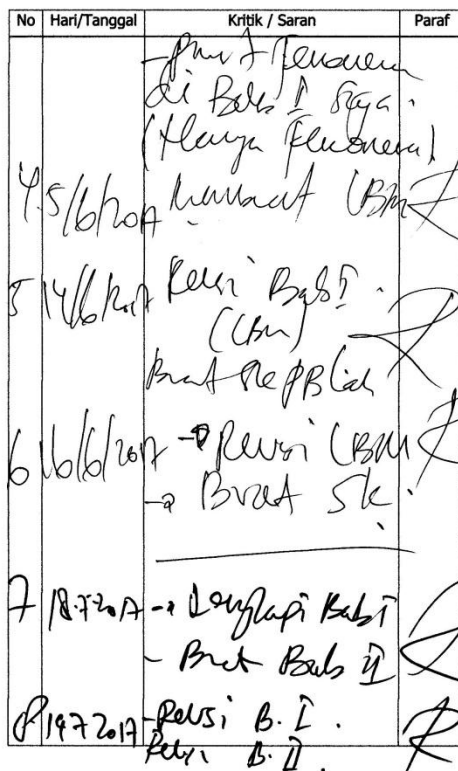 No Hari/Tanggal Kritik / Saran Paraf
- Buat Fenomena
di Bab I saja.
(Hanya Fenomena)
4 5/6/2017 Membuat LBM
5 14/6/2017 Revisi Bab I.
(LBM)
Buat
6 16/6/2017 → Revisi LBM
→ Buat SK.
7 18.7.2017 → Lengkapi Bab I
- Buat Bab II
8 19 7 2017 - Revisi B. I.
Revisi B. II.